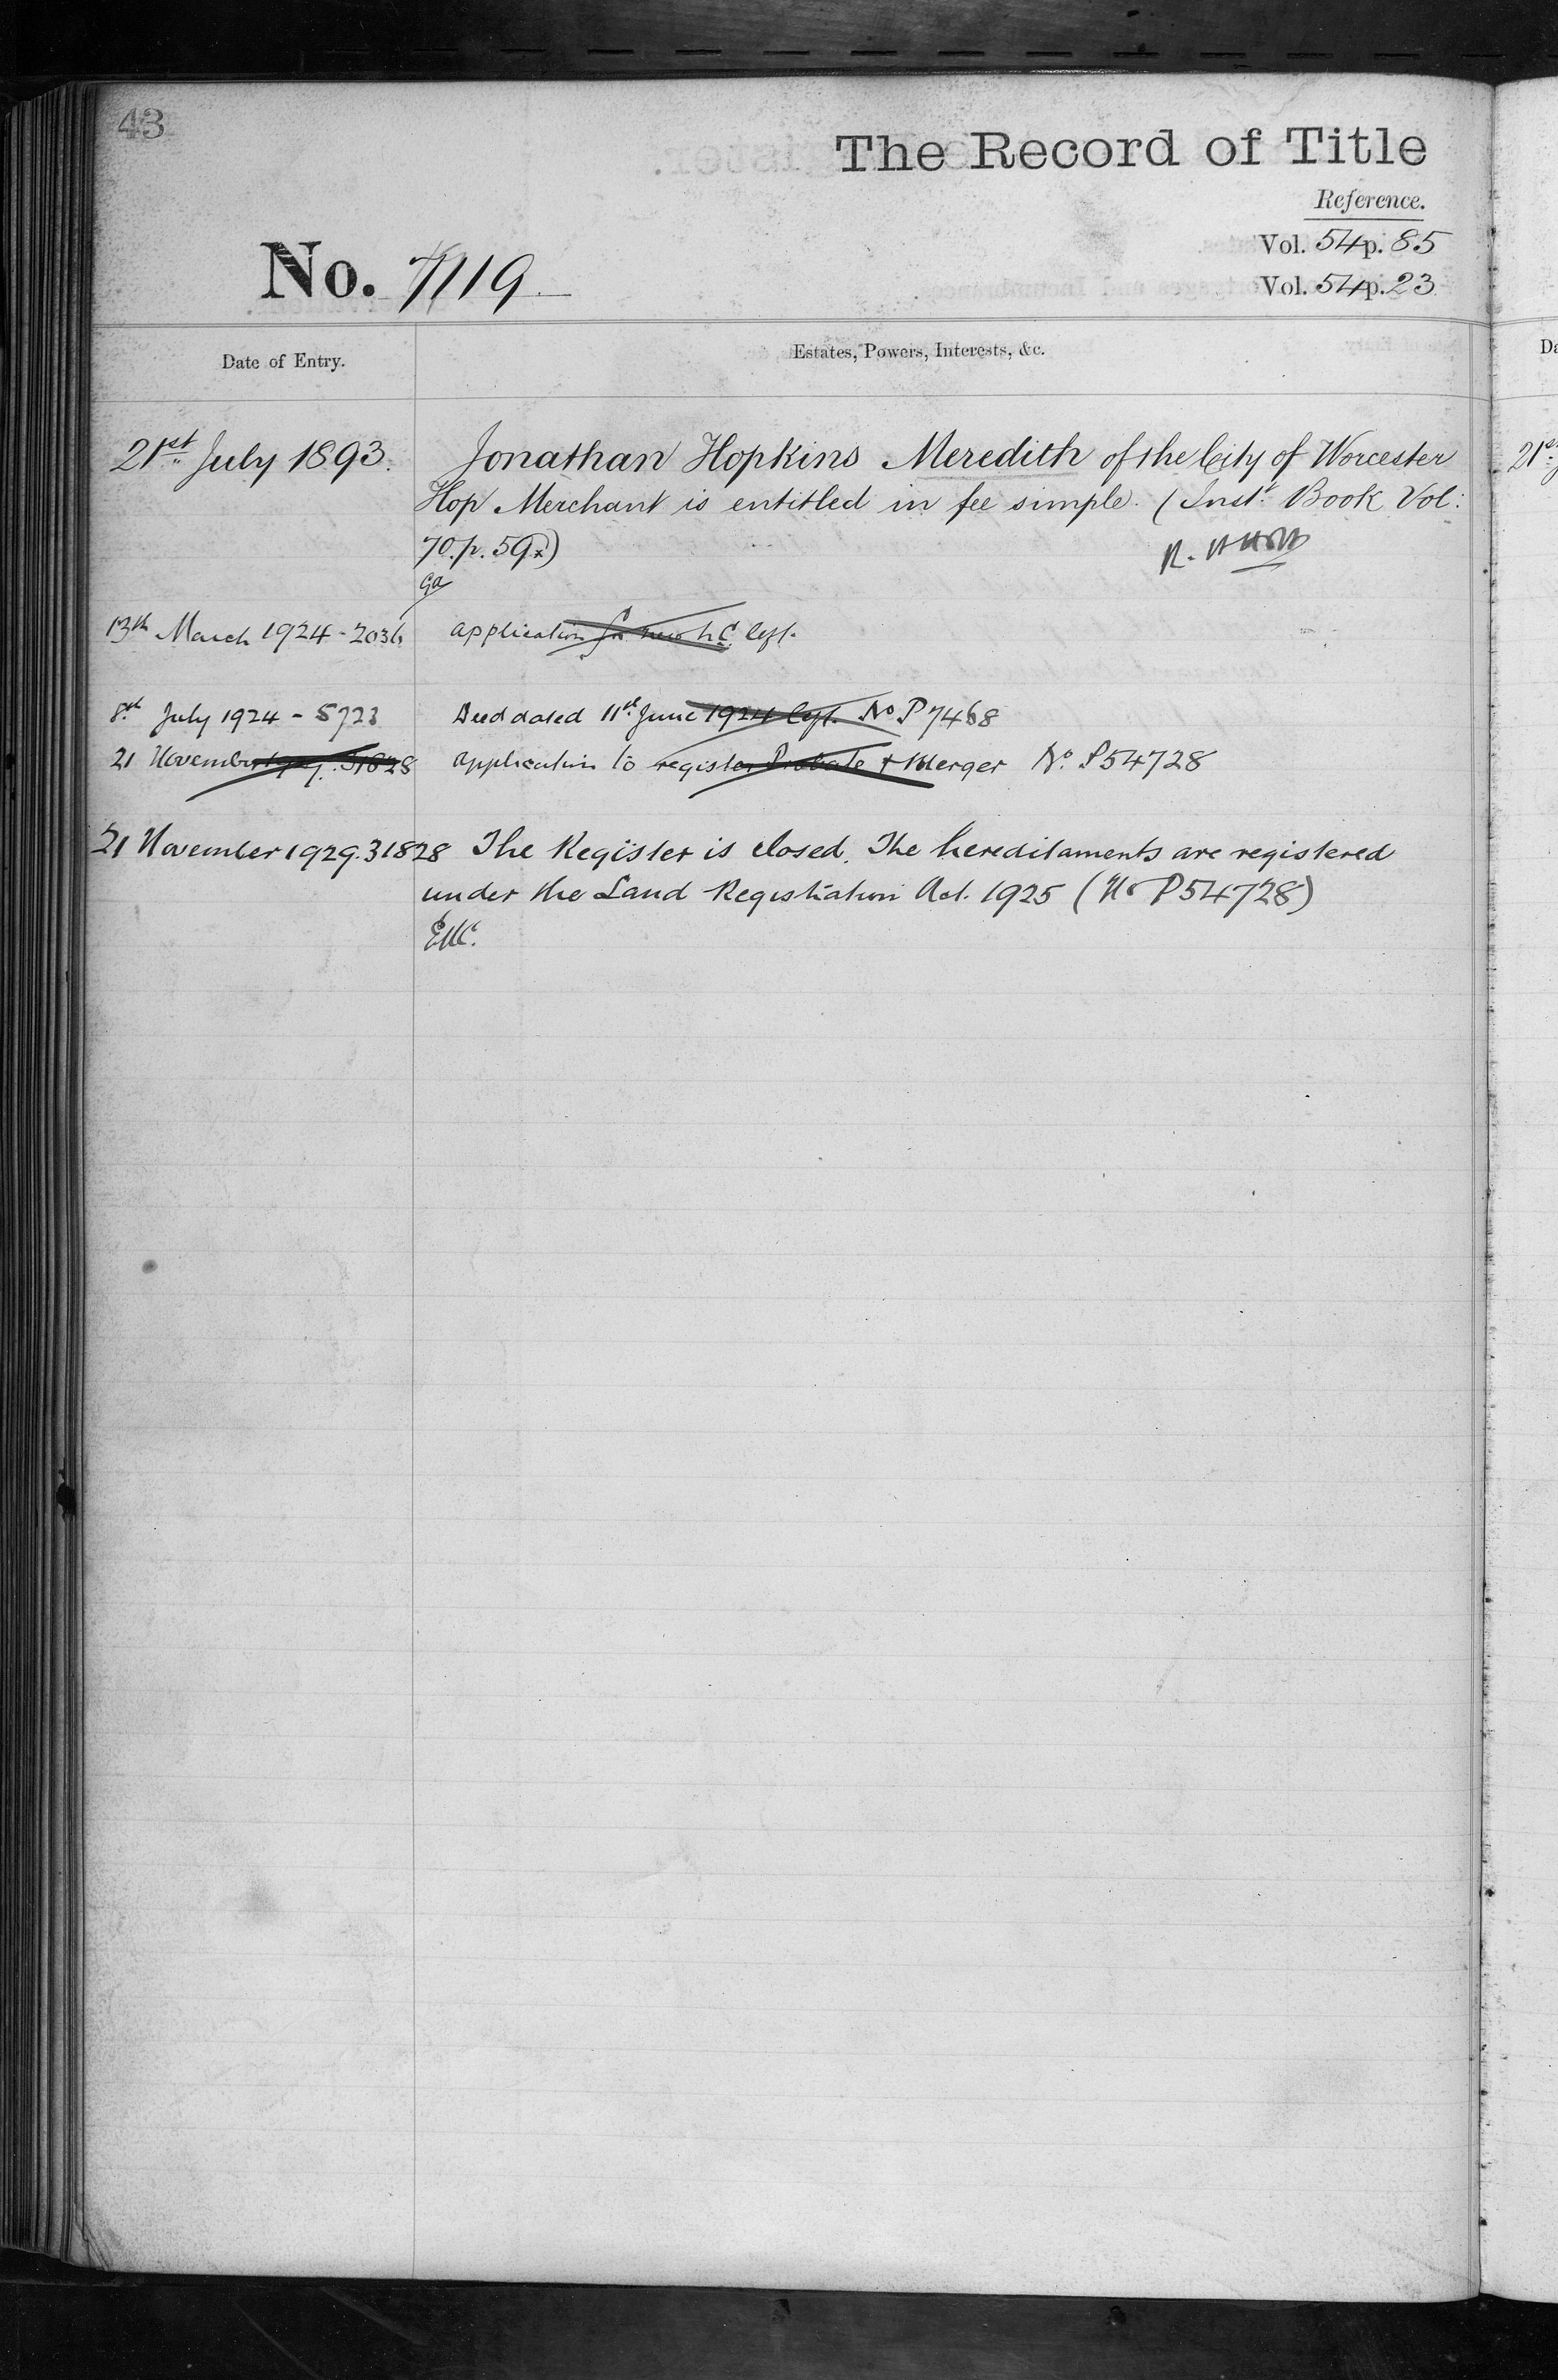 43
The Record of Title
Reference.
Vol. 54 p. 85
No. 7119
Vol. 54 p. 23
Date of Entry.
Estates, Powers, Interests, &c.
21st July 1893. Jonathan Hopkins Meredith of the City of Worcester
Hop Merchant is entitled in fee simple. (Inst. Book Vol:
70. p. 59x)
13th March 1924 - 2036 application for new L C left.
8th July 1924 - 5723 Deed dated 11th June 1924 left. No P 7468
21 November 1929. 31828 application to register Probate & Merger No. P54728
21 November 1929. 31828 The Register is closed. The hereditaments are registered
under the Land Registration Act. 1925 (No P54728)
21st